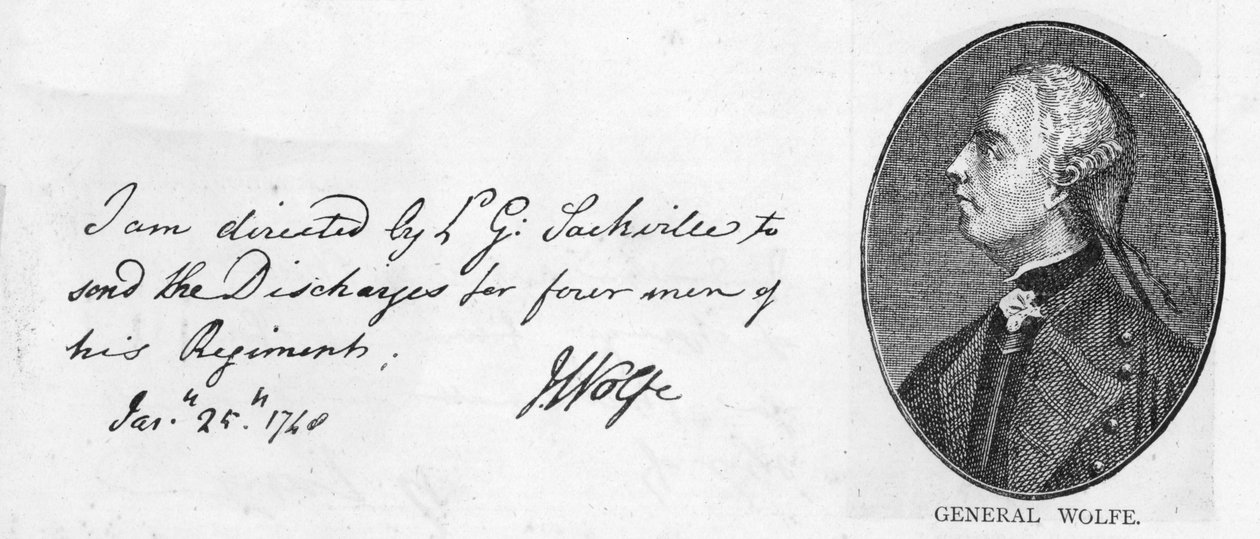 I am directed by Ld G: Sackville to
send the Discharges for four men of
his Regiment;
J: Wolfe
Jan.y 25.th 1748
GENERAL WOLFE.